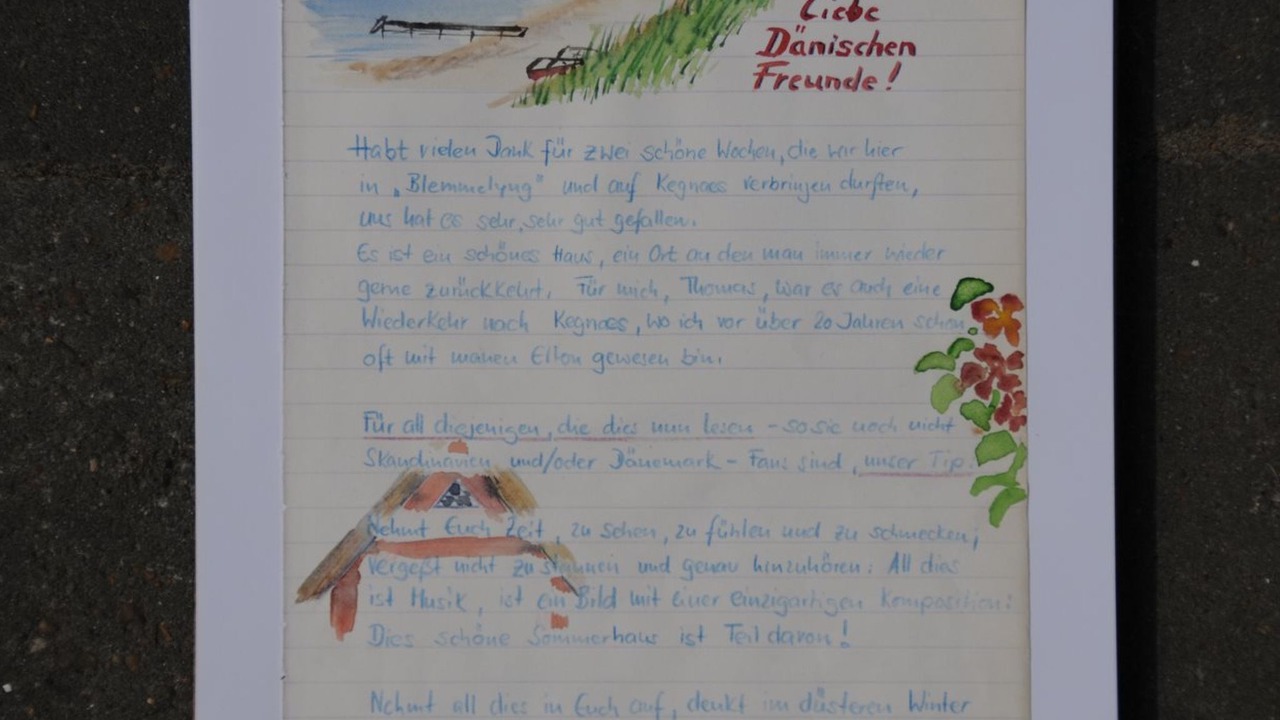 Liebe
Dänischen
Freunde!
Habt vielen Dank für zwei schöne Wochen, die wir hier
in „Blemmelyng" und auf Kegnaes verbringen durften,
uns hat es sehr, sehr gut gefallen.
Es ist ein schönes Haus, ein Ort an den man immer wieder
gerne zurückkehrt. Für mich, Thomas, war es auch eine
Wiederkehr nach Kegnaes, wo ich vor über 20 Jahren schon
oft mit meinen Eltern gewesen bin.
Für all diejenigen, die dies nun lesen - so sie noch nicht
Skandinavien und/oder Dänemark - Fans sind, unser Tip:
Nehmt Euch Zeit, zu sehen, zu fühlen und zu schmecken;
vergeßt nicht zu staunen und genau hinzuhören: All dies
ist Musik, ist ein Bild mit einer einzigartigen Komposition:
Dies schöne Sommerhaus ist Teil davon!
Nehmt all dies in Euch auf, denkt im düsteren Winter